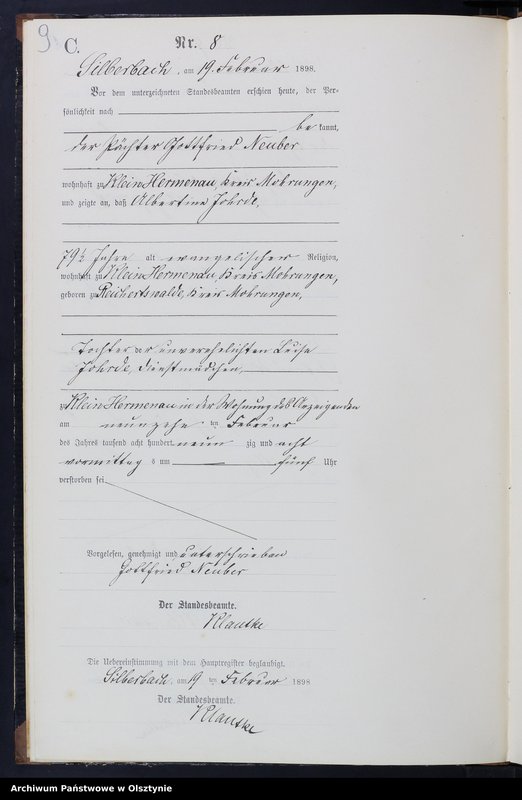 9
C.
Nr. 8
Silberbach, am 19. Februar 1898.
Vor dem unterzeichneten Standesbeamten erschien heute, der Per-
sönlichkeit nach
be kannt,
der Pächter Gottfried Neuber
wohnhaft zu Klein Hermenau, Kreis Mohrungen,
und zeigte an, daß Albertine Johrde,
79½ Jahre alt evangelischer Religion,
wohnhaft zu Klein Hermenau, Kreis Mohrungen,
geboren zu Reichertswalde, Kreis Mohrungen,
Tochter der unverehelichten Luise
Johrde, Dienstmädchen,
zu Klein Hermenau in der Wohnung des Anzeigenden
am neunzehn ten Februar
des Jahres tausend acht hundert neun zig und acht
vormittag s um fünf Uhr
verstorben sei.
Vorgelesen, genehmigt und unterschrieben
Gottfried Neuber
Der Standesbeamte.
Klautke
Die Uebereinstimmung mit dem Hauptregister beglaubigt.
Silberbach, am 19 ten Februar 1898
Der Standesbeamte.
Klautke
Archiwum Państwowe w Olsztynie